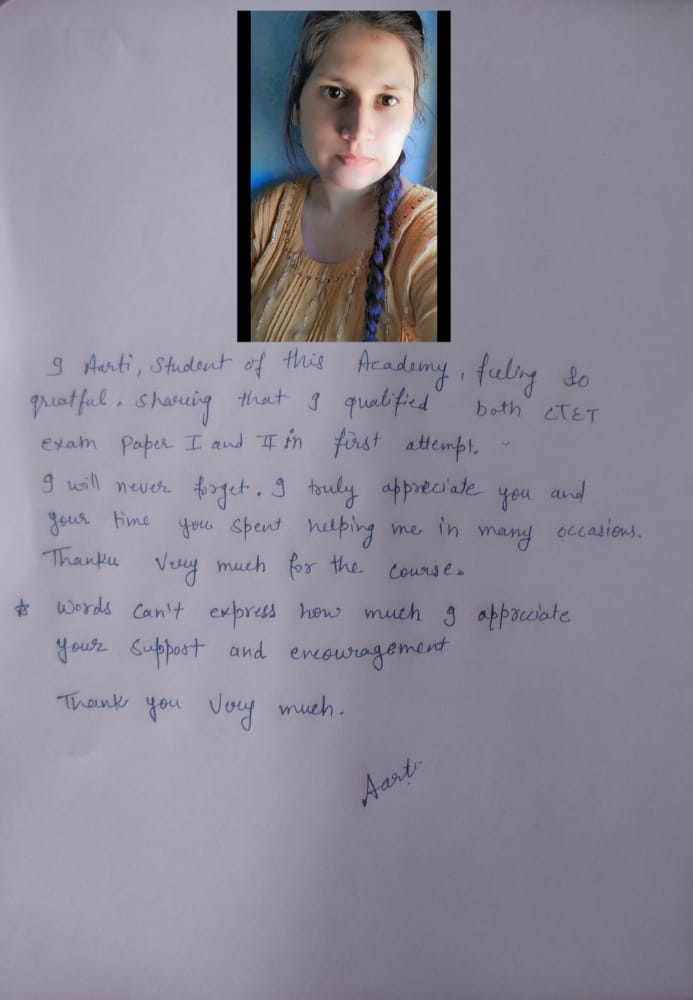 I Aarti, Student of this Academy, feeling so
greatful. Sharing that I qualified both CTET
exam Paper I and II in first attempt.
I will never forget. I truly appreciate you and
your time you spent helping me in many occasions.
Thanku Very much for the course.
☆ Words can't express how much I appreciate
your Support and encouragement
Thank you Very much.
Aarti